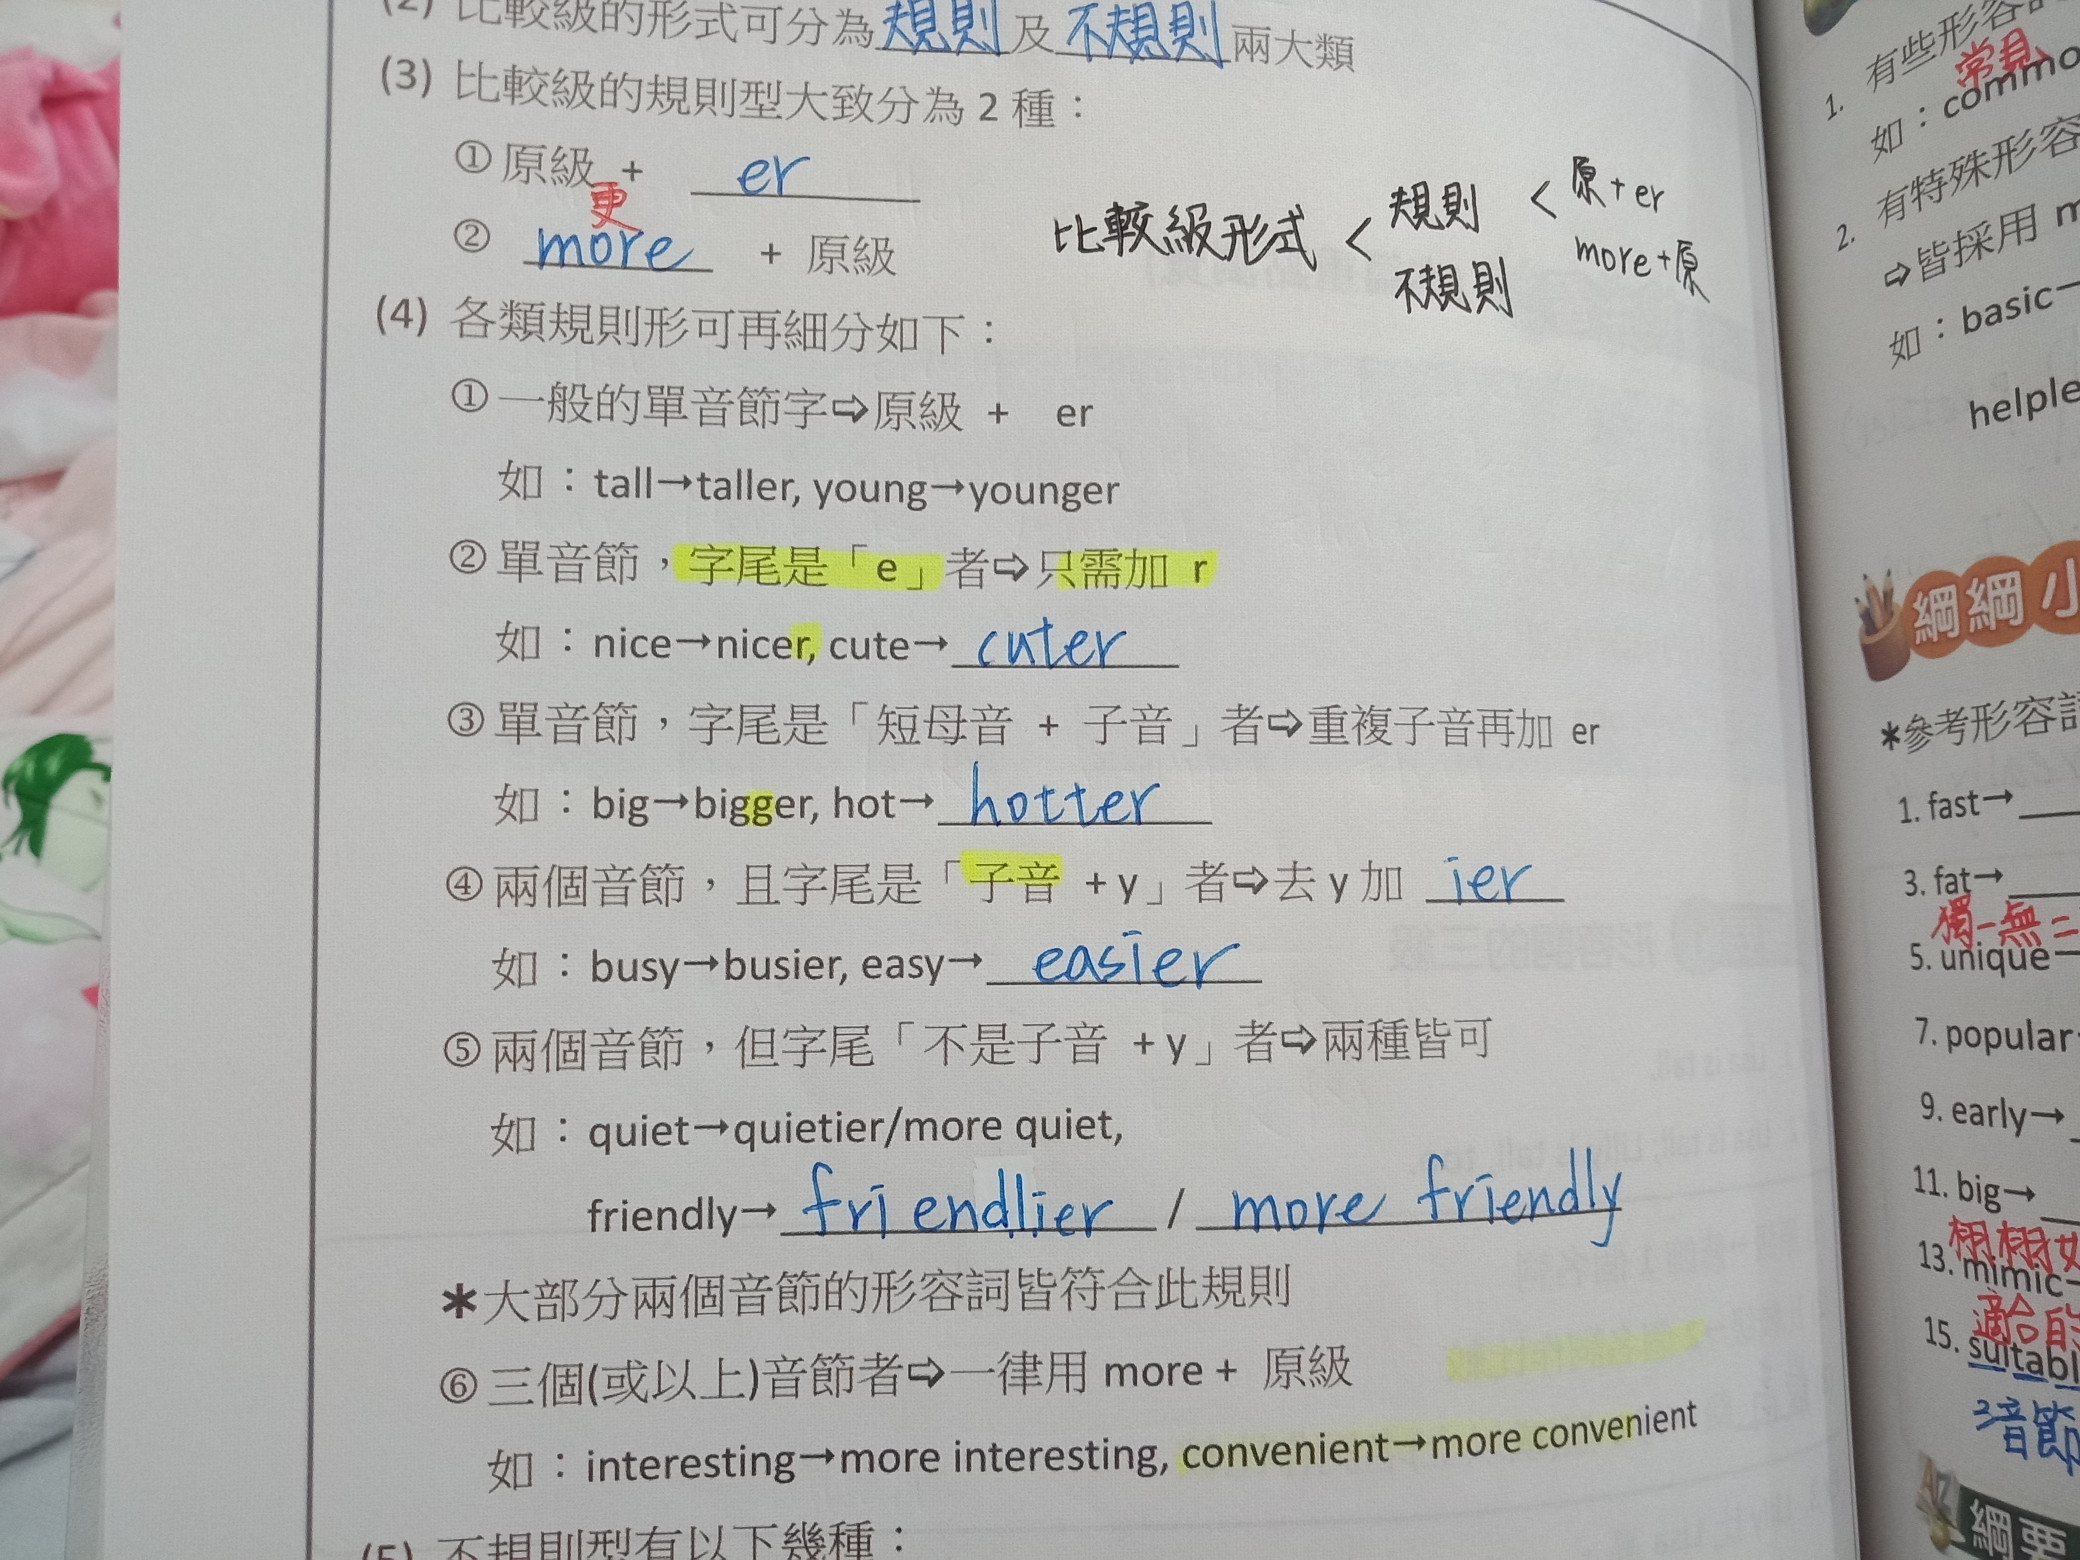 (2) 比較級的形式可分為規則及不規則兩大類
(3) 比較級的規則型大致分為 2 種：
① 原級 + er
更
② more + 原級
比較級形式 < 規則 < 原+er
more+原
不規則
(4) 各類規則形可再細分如下：
① 一般的單音節字⇨原級 + er
如：tall→taller, young→younger
② 單音節，字尾是「e」者⇨只需加 r
如：nice→nicer, cute→cuter
③ 單音節，字尾是「短母音 + 子音」者⇨重複子音再加 er
如：big→bigger, hot→hotter
④ 兩個音節，且字尾是「子音 + y」者⇨去 y 加 ier
如：busy→busier, easy→easier
⑤ 兩個音節，但字尾「不是子音 + y」者⇨兩種皆可
如：quiet→quietier/more quiet,
friendly→friendlier / more friendly
＊大部分兩個音節的形容詞皆符合此規則
⑥ 三個(或以上)音節者⇨一律用 more + 原級
如：interesting→more interesting, convenient→more convenient
(5) 不規則型有以下幾種：
1. 有些形容
常見
如：commo
2. 有特殊形容
⇨皆採用 m
如：basic→
helple
綱綱小
＊參考形容詞
1. fast→
3. fat→
獨一無二
5. unique→
7. popular
9. early→
11. big→
栩栩如
13. mimic→
適合
15. suitabl
3音節
綱要